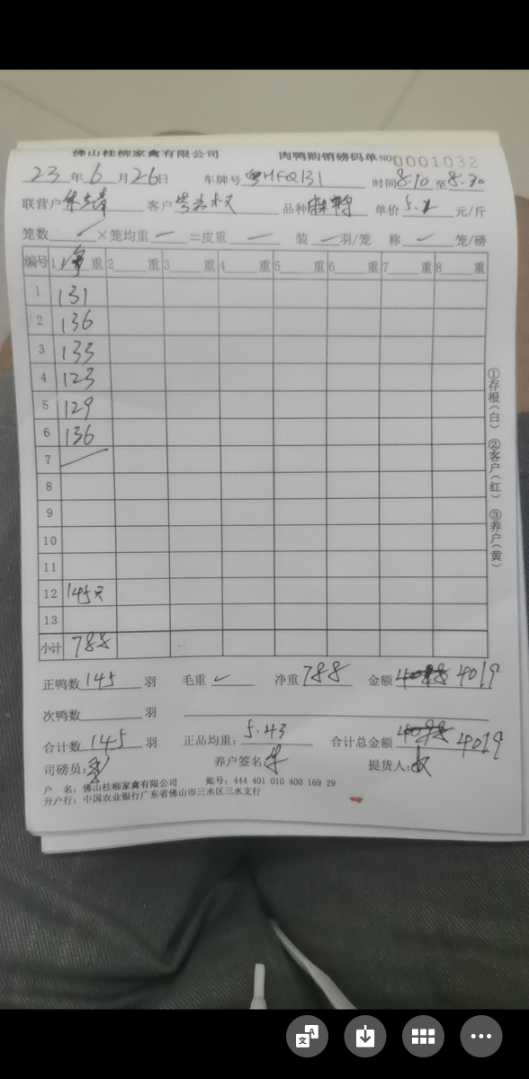 佛山桂柳家禽有限公司 肉鸭购销磅码单 NO 0001032
23年6月26日 车牌号 粤HFQ131 时间8.10至8.30
联营户 客户 品种 单价5. 元/斤
笼数 ×笼均重 =皮重 装 羽/笼 称 笼/磅
编号 1净重 2 重 3 重 4 重 5 重 6 重 7 重 8 重
1 131
2 136
3 133
4 123
5 129
6 136
7
8
9
10
11
12 145只
13
小计 788
正鸭数145羽 毛重 净重788 金额 4019
次鸭数 羽
合计数145羽 正品均重:5.43 合计总金额 4019
司磅员: 养户签名 提货人:
户 名:佛山桂柳家禽有限公司 账号:444 401 010 400 169 29
开户行:中国农业银行广东省佛山市三水区三水支行
①存根(白) ②客户(红) ③养户(黄)